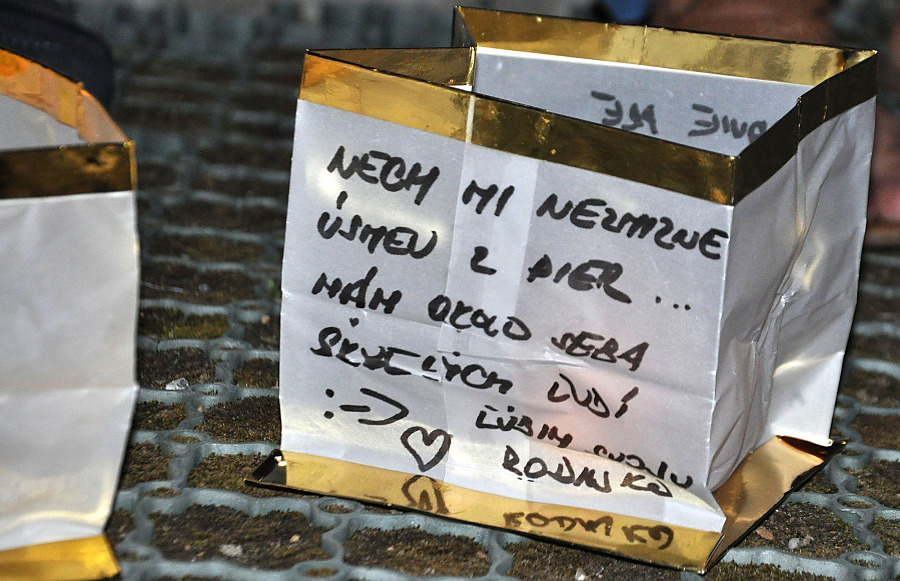 NECH MI NEZMZNE
ÚSMEV Z PIER...
MÁM OKOLO SEBA
SKVELÝCH ĽUDÍ
:-) ĽÚBIM SVOJU
♡ RODINKU